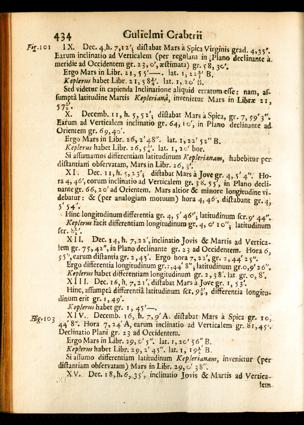 434 Gulielmi Crabtrii
Fig.101 IX. Dec. 4. h. 7, 12', distabat Mars à Spica Virginis grad. 4, 35".
Earum inclinatio ad Verticalem (per regulam in Plano declinante à
meridie ad Occidentem gr. 23, 0', æstimata) gr. 58, 30'.
Ergo Mars in Libr. 21, 55' lat. 1, B.
Keplerus habet Libr. 21, lat. 1, 20' B.
Sed videtur in capienda Inclinatione aliquid erratum esse: nam, as-
sumptâ latitudine Martis Keplerianâ, invenietur Mars in Libræ 21,
X. Decemb. 11, h. 5, 52', distabat Mars à Spica, gr. 7, 59' 3".
Earum ad Verticalem inclinatio gr. 64, 10', in Plano declinante ad
Orientem gr. 69, 40'.
Ergo Mars in Libr. 26, 2' 48". lat. 1, 22' 52" B.
Keplerus habet Libr. 26, lat. 1, 20' bor.
Si assumamus differentiam latitudinum Keplerianam, habebitur per
distantiam observatam, Mars in Libr. 26,
XI. Dec. 11, h. 5, 23', distabat Mars à Jove gr. 4, 5' 4". Ho-
ra 4, 46', eorum inclinatio ad Verticalem gr. 38. 55', in Plano decli-
nante gr. 66, 20' ad Orientem. Mars altior & minore longitudine vi-
debatur: & (per analogiam motuum) hora 4, 46', distabant gr. 4,
5' 54".
Hinc longitudinum differentia gr. 4, 5' 46", latitudinum scr. 9' 44".
Keplerus facit differentiam longitudinum gr. 4, 0' 10"; latitudinum
scr.
XII. Dec. 14, h. 7, 22', inclinatio Jovis & Martis ad Vertica-
lem gr. 75, 42", in Plano declinante gr. 23 ad Occidentem. Hora 6,
55', earum distantia gr. 2, 45'. Ergo hora 7, 22', gr. 2, 44' 25".
Ergo differentia longitudinum gr. 2, 44' 8", latitudinum gr. 0, 9' 26".
Keplerus habet differentiam longitudinum gr. 2, 38'. lat. gr. 0, 8'.
XIII. Dec. 16, h. 7, 21', distabat Mars à Jove gr. 1, 53'.
Hinc, assumptâ differentiâ latitudinum scr. differentia longitu-
dinum erit gr. 1, 49'.
Keplerus habet gr. 1, 45'.
Fig.103 XIV. Decemb. 16, h. 7, 9'. distabat Mars à Spica gr. 10,
44' 8". Hora 7, 24' A, earum inclinatio ad Verticalem gr. 81, 45'.
Declinatio Plani gr. 23 ad Occidentem.
Ergo Mars in Libr. 29, 0' 5". lat. 1, 20' 56" B.
Keplerus habet Libr. 29, 2' 45". lat. 1, B.
Si assumo differentiam latitudinum Keplerianam, invenietur (per
distantiam observatam) Mars in Libr. 29, 0' 38".
XV. Dec. 18, h. 6, 35', inclinatio Jovis & Martis ad Vertica-
lem